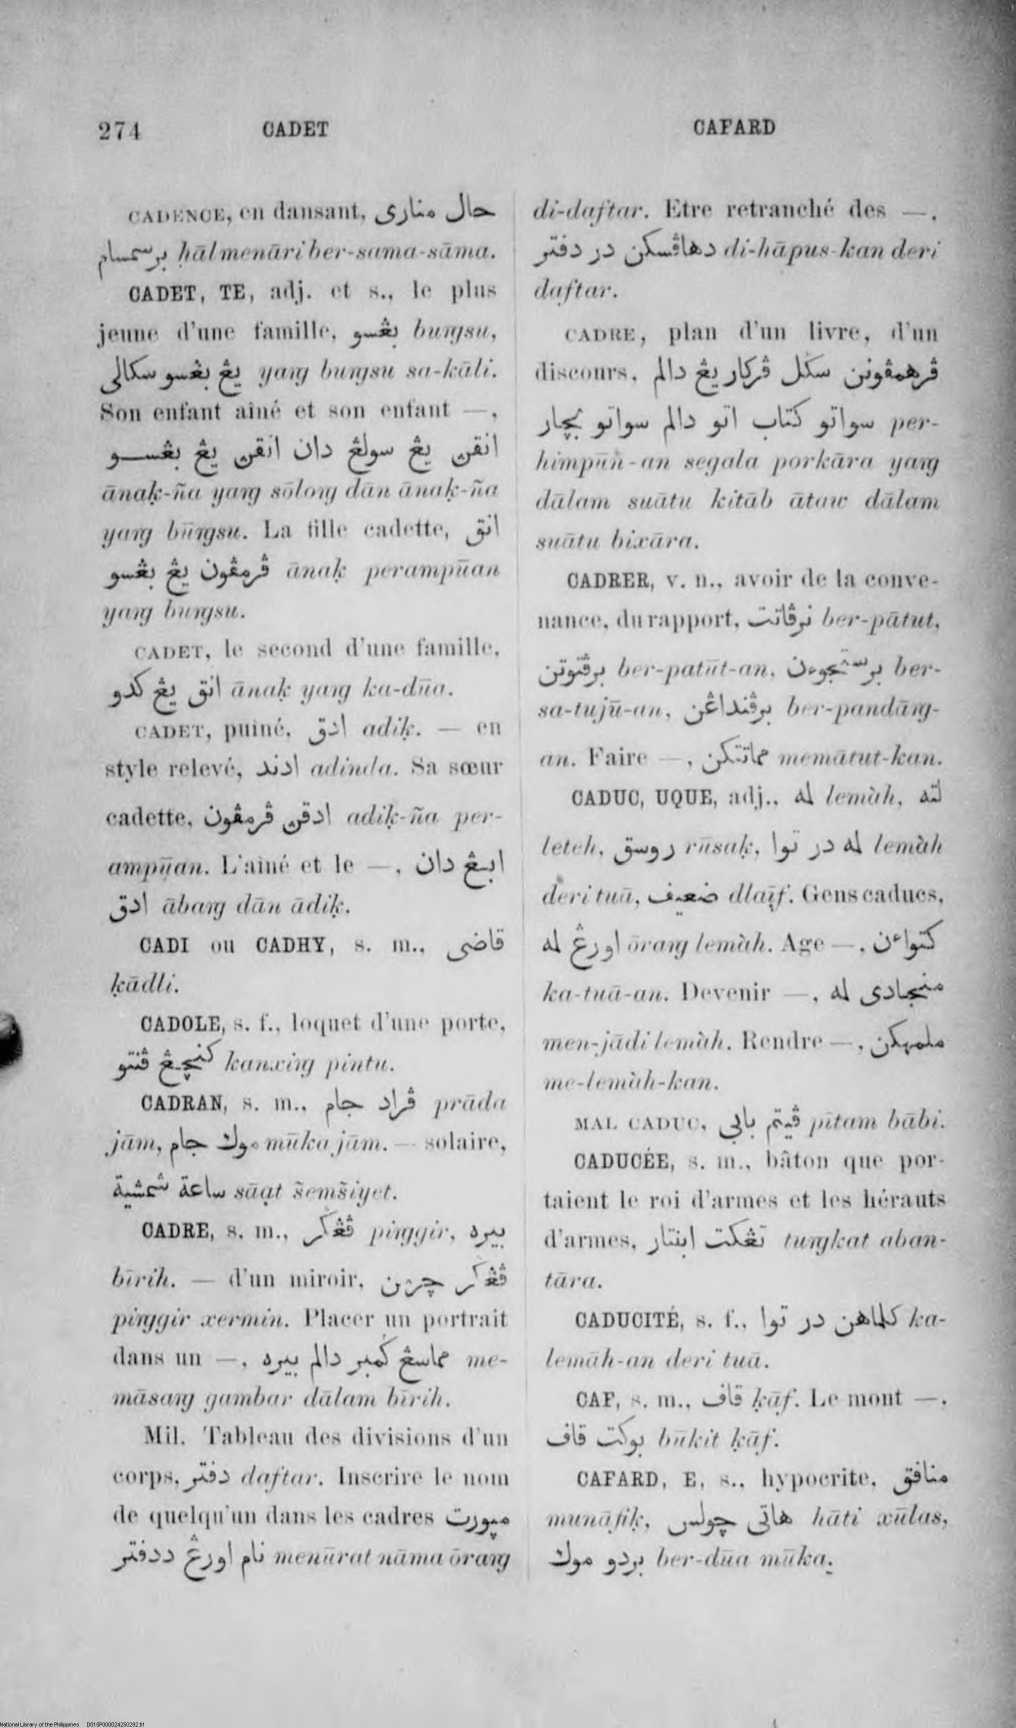 274 CADET CAFARD
CADENCE, en dansant, حال مناري
برسمسام ḥāl menāri ber-sama-sāma.
CADET, TE, adj. et s., le plus
jeune d'une famille, بڠسو buṅgsu,
يڠ بڠسو سكالي yaṅg buṅgsu sa-kāli.
Son enfant aîné et son enfant —,
انقن يڠ سولڠ دان انقن يڠ بڠسو
ānaḳ-ña yaṅg sōloṅg dān ānaḳ-ña
yaṅg būṅgsu. La fille cadette, انق
ڤرمڤون يڠ بڠسو ānaḳ perampūan
yaṅg buṅgsu.
CADET, le second d'une famille,
انق يڠ كدو ānaḳ yaṅg ka-dūa.
CADET, puiné, ادق adiḳ. — en
style relevé, ادند adinda. Sa sœur
cadette, ادقن ڤرمڤون adiḳ-ña per-
ampūan. L'aîné et le —, ابڠ دان
ادق ābaṅg dān ādiḳ.
CADI ou CADHY, s. m., قاضى
ḳādli.
CADOLE, s. f., loquet d'une porte,
كنچڠ ڤنتو kanxiṅg pintu.
CADRAN, s. m., ڤراد جام prāda
jām, موك جام mūka jām. — solaire,
ساعة شمشية sāạt šemšiyet.
CADRE, s. m., ڤڠݢر piṅggir, بيره
bīrih. — d'un miroir, ڤڠݢر چرمن
piṅggir xermin. Placer un portrait
dans un —, مماسڠ ݢمبر دالم بيره me-
māsaṅg gambar dālam bīrih.
Mil. Tableau des divisions d'un
corps, دفتر daftar. Inscrire le nom
de quelqu'un dans les cadres مپورت
نام اورڠ ددفتر menūrat nāma ōraṅg
di-daftar. Etre retranché des —,
دهاڤسكن در دفتر di-hāpus-kan deri
daftar.
CADRE, plan d'un livre, d'un
discours, ڤرهمڤونن سكل ڤركار يڠ دالم
سواتو كتاب اتو دالم سواتو بچار per-
himpūn-an segala porkāra yaṅg
dālam suātu kitāb ātaw dālam
suātu bixāra.
CADRER, v. n., avoir de la conve-
nance, du rapport, برڤاتت ber-pātut,
برڤتوتن ber-patūt-an, برستجوءن ber-
sa-tujū-an, برڤنداڠن ber-pandāṅg-
an. Faire —, مماتتكن memātut-kan.
CADUC, UQUE, adj., له lemàh, لته
leteh, روسق rūsaḳ, له در توا lemàh
deri tuā, ضعيف dlaị̄f. Gens caducs,
اورڠ له ōraṅg lemàh. Age —, كتواءن
ka-tuā-an. Devenir —, منجادى له
men-jādi lemàh. Rendre —, ملمهكن
me-lemàh-kan.
MAL CADUC, ڤيتم بابي pītam bābi.
CADUCÉE, s. m., bâton que por-
taient le roi d'armes et les hérauts
d'armes, تڠكت ابنتار tuṅgkat aban-
tāra.
CADUCITÉ, s. f., كلماهن در توا ka-
lemāh-an deri tuā.
CAF, s. m., قاف ḳāf. Le mont —,
بوكت قاف būkit ḳāf.
CAFARD, E, s., hypocrite, منافق
munāfiḳ, هاتى چولس hāti xūlas,
بردو موك ber-dūa mūka.
National Library of the Philippines